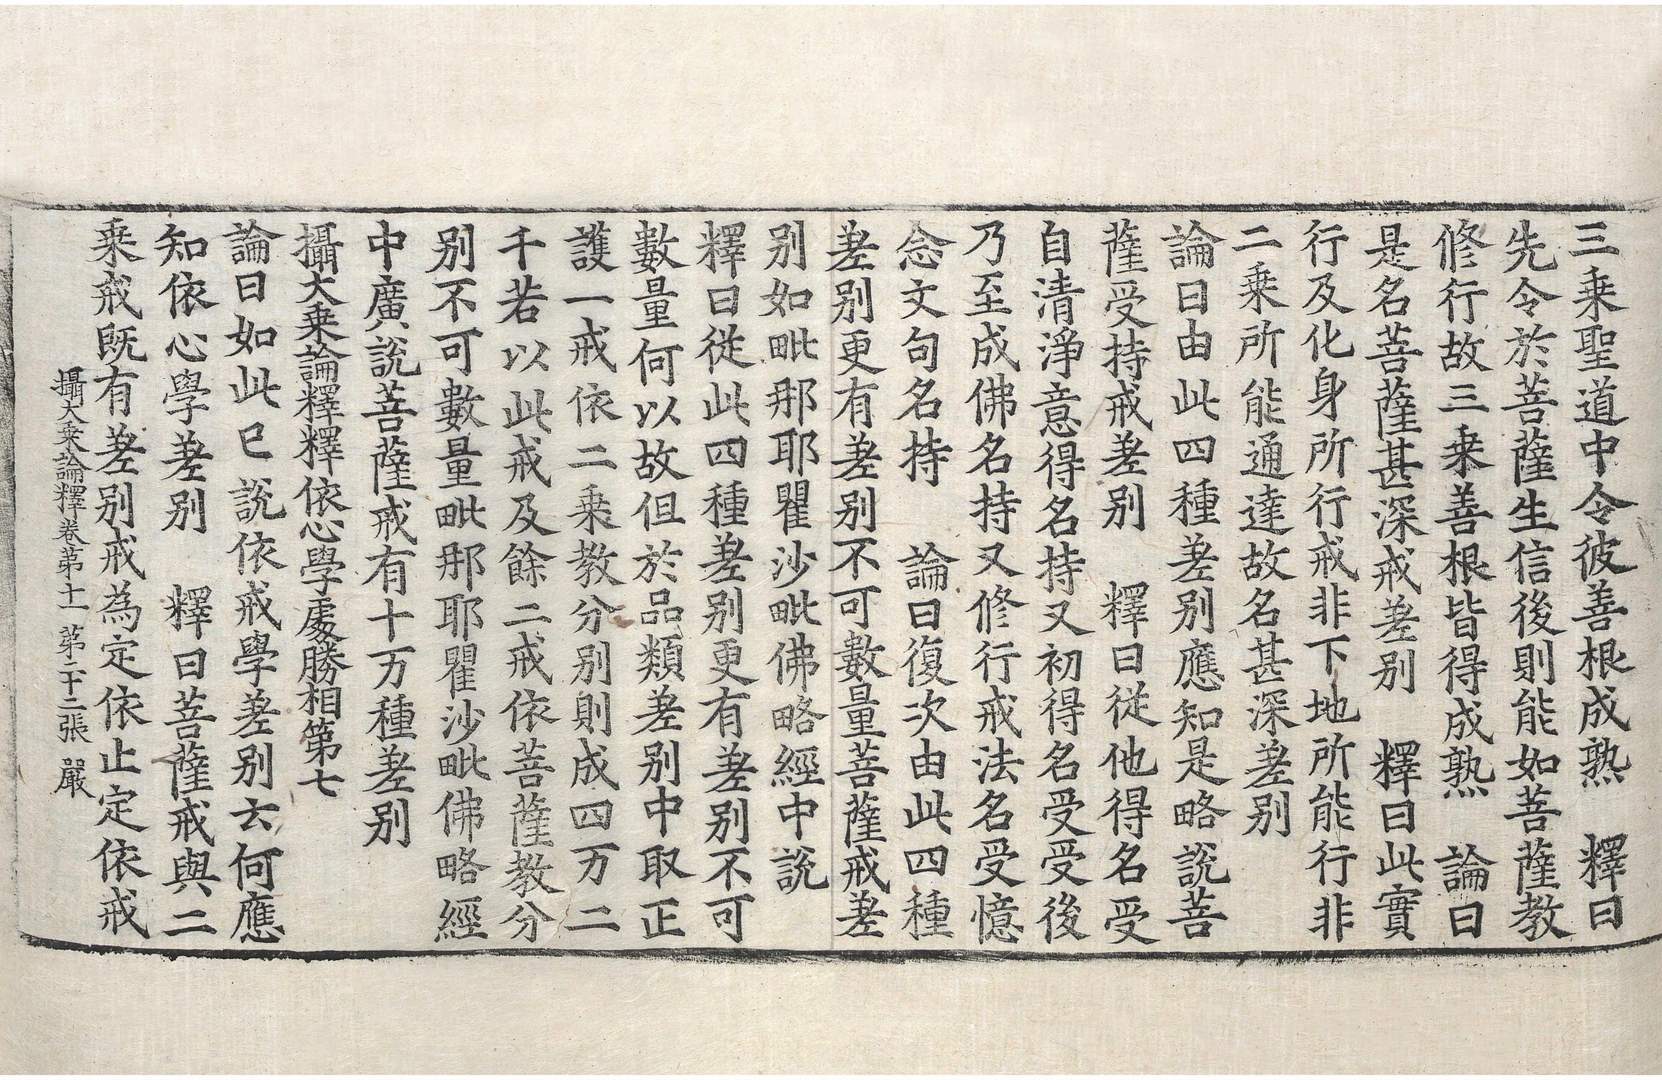 三乗聖道中令彼善根成熟　釋曰
先令於菩薩生信後則能如菩薩教
修行故三乗善根皆得成熟　論曰
是名菩薩甚深戒差别　釋曰此實
行及化身所行戒非下地所能行非
二乗所能通達故名甚深差别
論曰由此四種差别應知是略說菩
薩受持戒差别　釋曰從他得名受
自清淨意得名持又初得名受受後
乃至成佛名持又修行戒法名受憶
念文句名持　論曰復次由此四種
差别更有差别不可數量菩薩戒差
别如毗那耶瞿沙毗佛略經中說
釋曰從此四種差别更有差别不可
數量何以故但於品類差别中取正
護一戒依二乗教分别則成四万二
千若以此戒及餘二戒依菩薩教分
别不可數量毗那耶瞿沙毗佛略經
中廣說菩薩戒有十万種差别
攝大乗論釋釋依心學處勝相第七
論曰如此已說依戒學差别云何應
知依心學差别　釋曰菩薩戒與二
乗戒既有差别戒為定依止定依戒
攝大乗論釋卷第十一　第二十二張　嚴